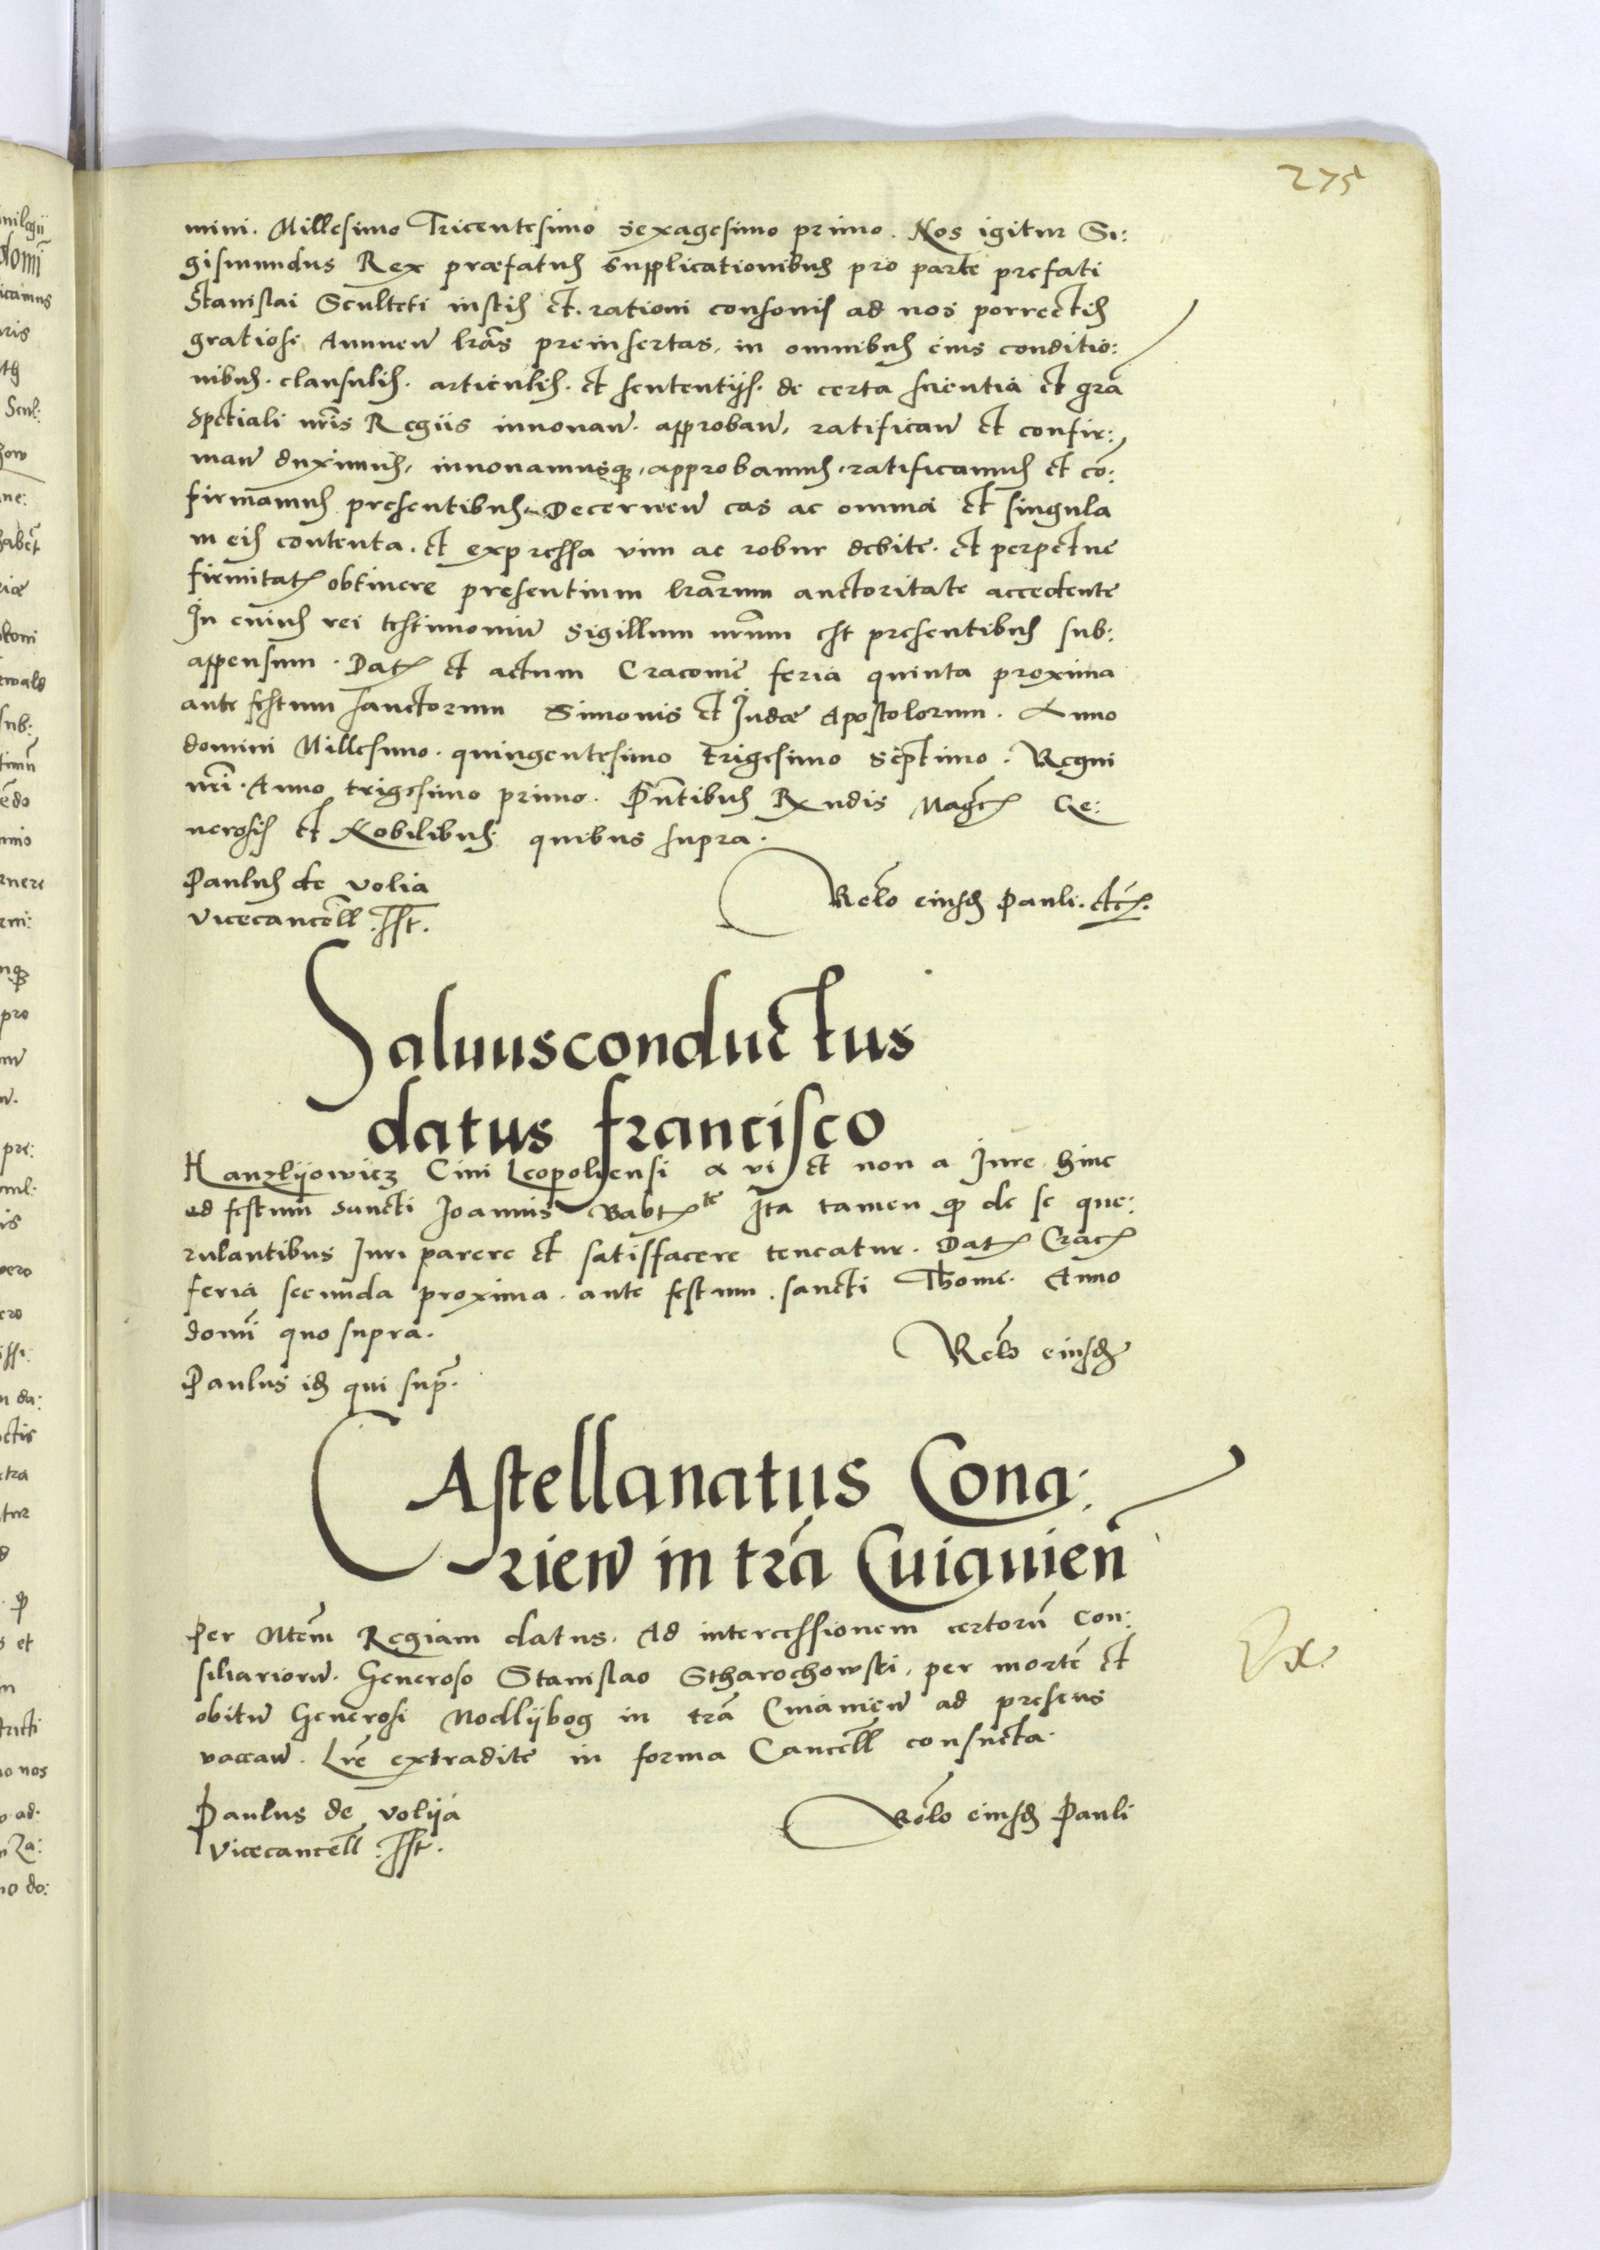 275
mini. Millesimo Tricentesimo sexagesimo primo. Nos igitur Si:
gismundus Rex præfatus supplicationibus pro parte prefati
Stanislai Sculteti iustis et. rationi consonis ad nos porrectis
gratiose Annuen lras preinsertas, in omnibus eius conditio:
nibus. clausulis. articulis. et sententijs. de certa scientia et gra
speciali nris Regiis innouan. approban, ratifican et confir:
man duximus, innouamusque, approbamus, ratificamus et co:
firmamus presentibus. Decernen eas ac omnia et singula
in eis contenta. et expressa vim ac robur debite. et perpetue
firmitatis obtinere presentium lrarum auctoritate accedente
In cuius rei testimoniu sigillum nrum est presentibus sub:
appensum. Dat et actum Cracouie feria quinta proxima
ante festum sanctorum Simonis et Judæ Apostolorum. Anno
domini Millesimo. quingentesimo trigesimo septimo. Regni
nri. Anno trigesimo primo. Pntibus Rxndis Magcis Ge:
nerosis et Nobilibus quibus supra.
Paulus de volia
Vicecancell. sst.
Relo eiusd Pauli. etc.
Saluusconductus
datus francisco
Hanzlijowicz Ciui Leopoliensi a vi et non a Jure hinc
ad festum sancti Joannis Babtte Ita tamen quod de se que:
rulantibus Juri parere et satisfacere teneatur. Dat Crac
feria secunda proxima. ante festum. sancti Thome. Anno
domi quo supra.
Relo eiusd
Paulus id qui sup.
CAstellanatus Cona:
rien in tra Cuiauien
Per Mtem Regiam datus. Ad intercessionem certoru Con:
siliarioru. Generoso Stanislao Stharochowski, per morte et
obitu Generosi Modlijbog in tra Cuiauien ad presens
vacan. Lre extradite in forma Cancell consueta.
Paulus de volija
Vicecancell. sst.
Relo eiusd Pauli